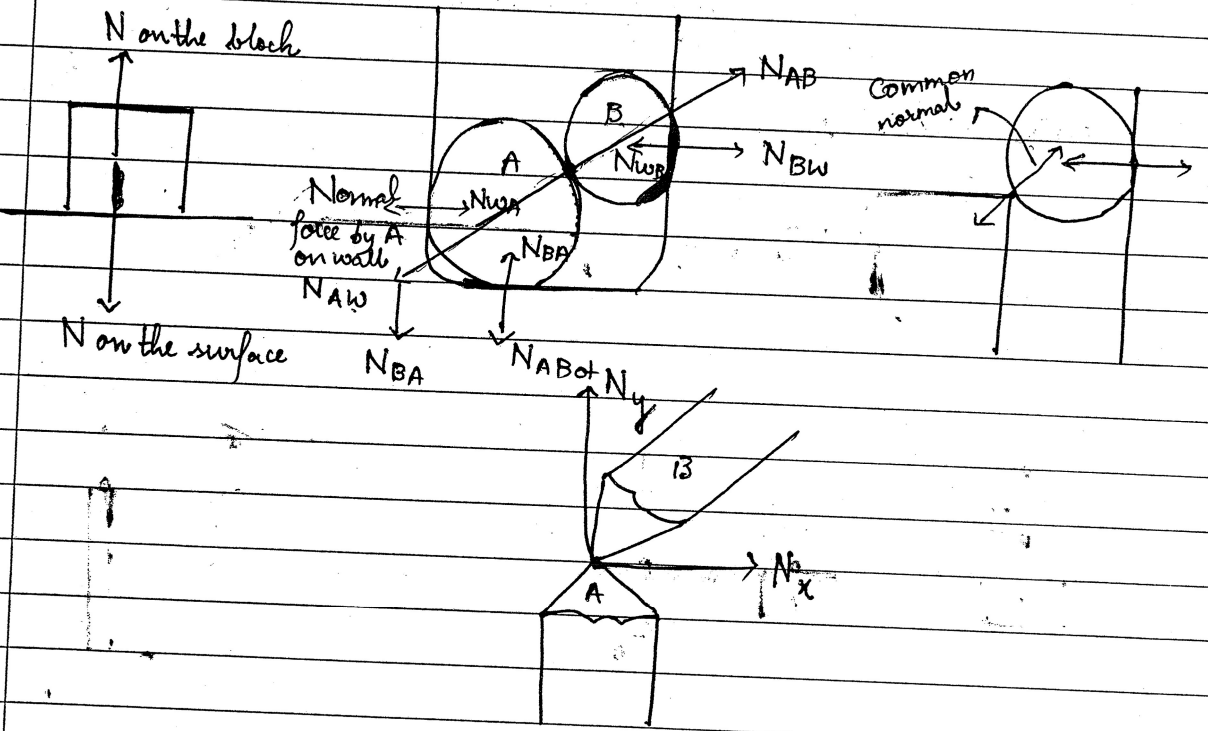 N on the block
N on the surface
A
B
N_AB
N_BW
N_WB
N_WA
Normal
force by A
on wall
N_AW
N_BA
N_BA
N_ABot
Common
normal
N_y
B
A
N_x